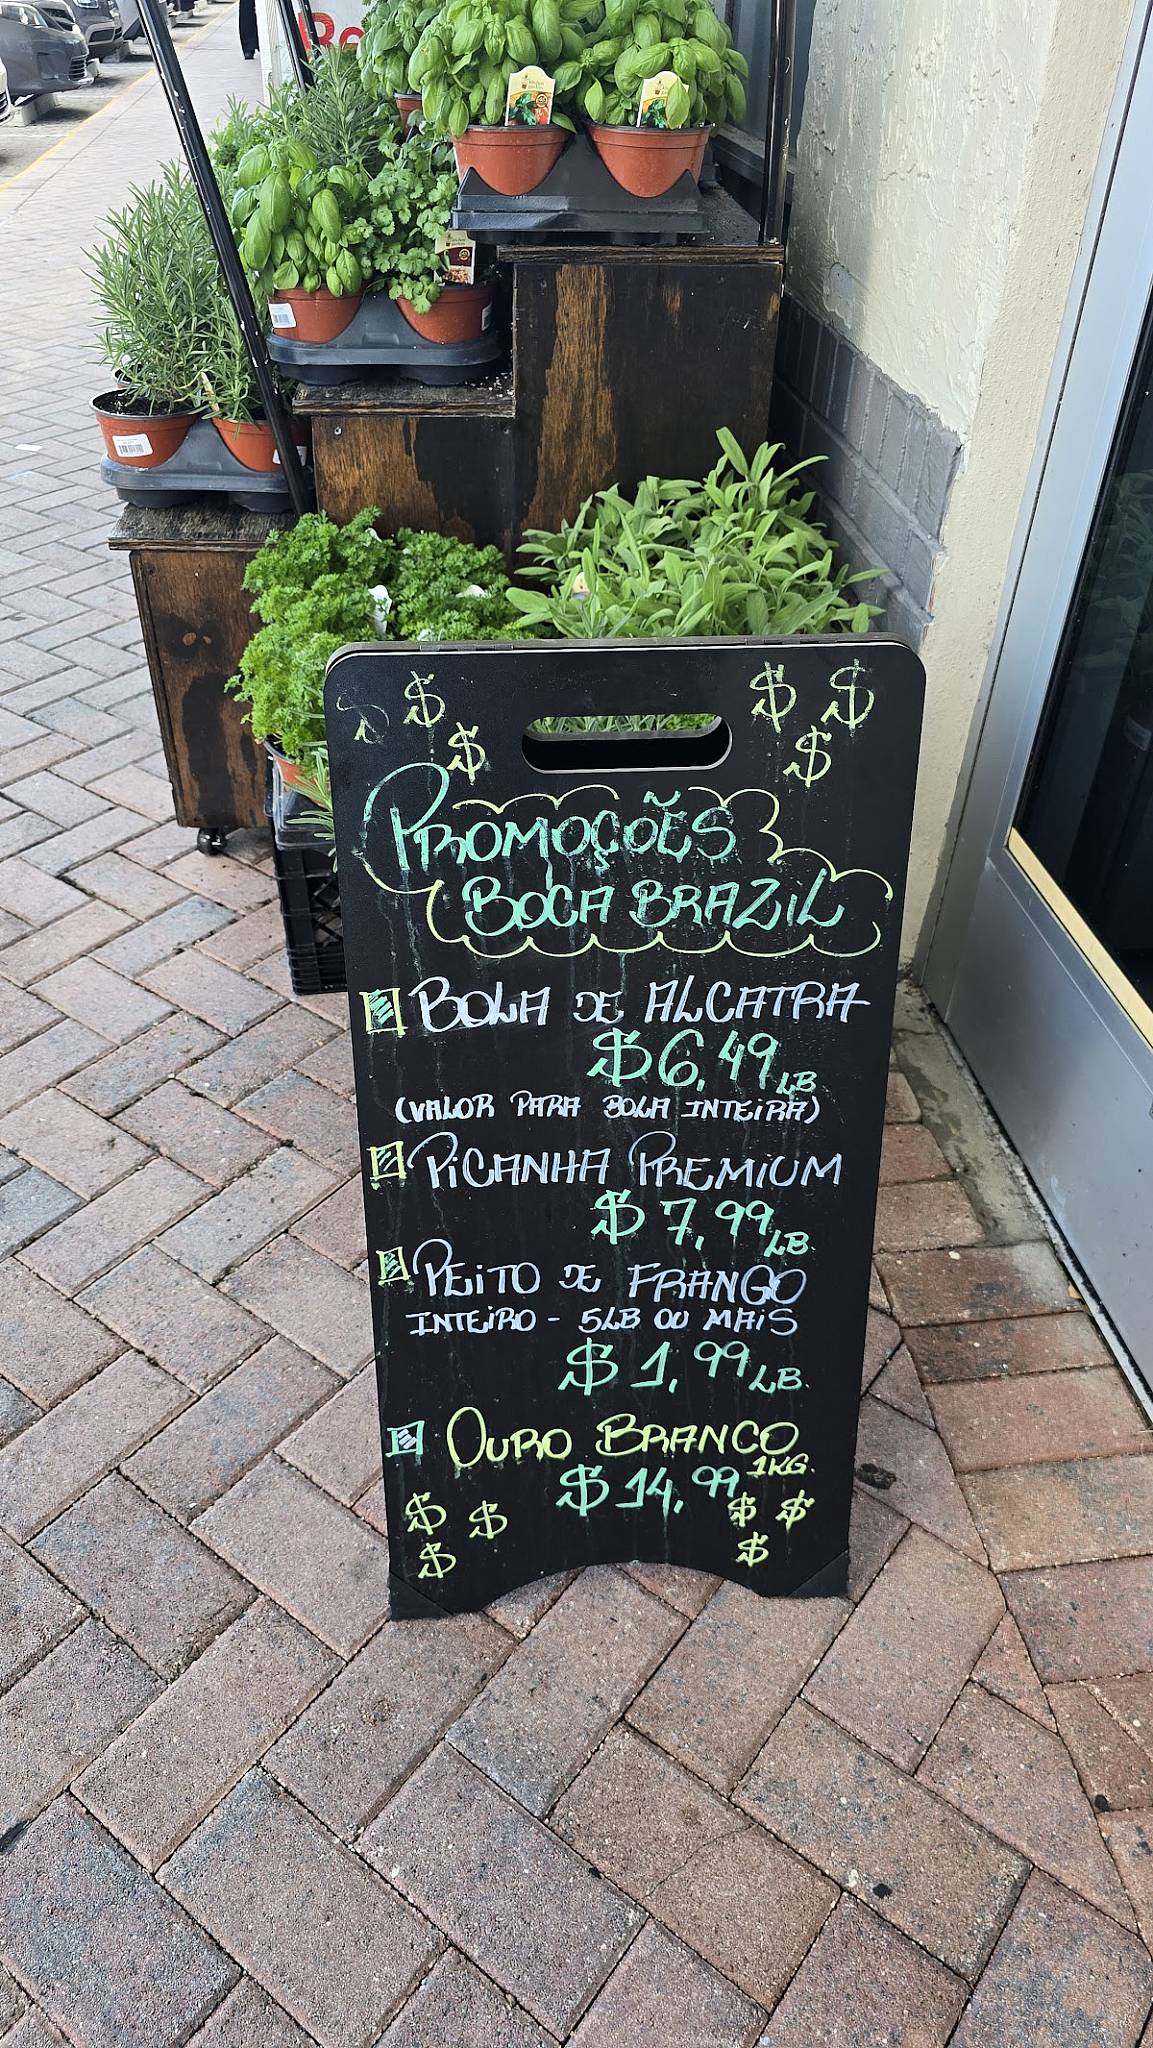 $ $ $ $
$ $
PROMOÇÕES
BOCA BRAZIL
BOLA DE ALCATRA
$6,49 LB
(VALOR PARA BOLA INTEIRA)
PICANHA PREMIUM
$7,99 LB.
PEITO DE FRANGO
INTEIRO - 5LB OU MAIS
$1,99 LB.
OURO BRANCO
1KG.
$14,99
$ $ $ $
$ $